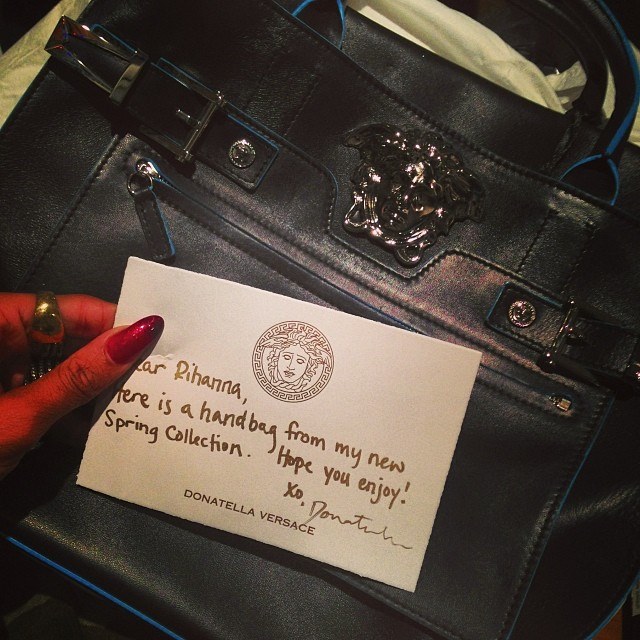 ear Rihanna,
ere is a handbag from my new
Spring Collection. Hope you enjoy!
xo, Donatella
DONATELLA VERSACE